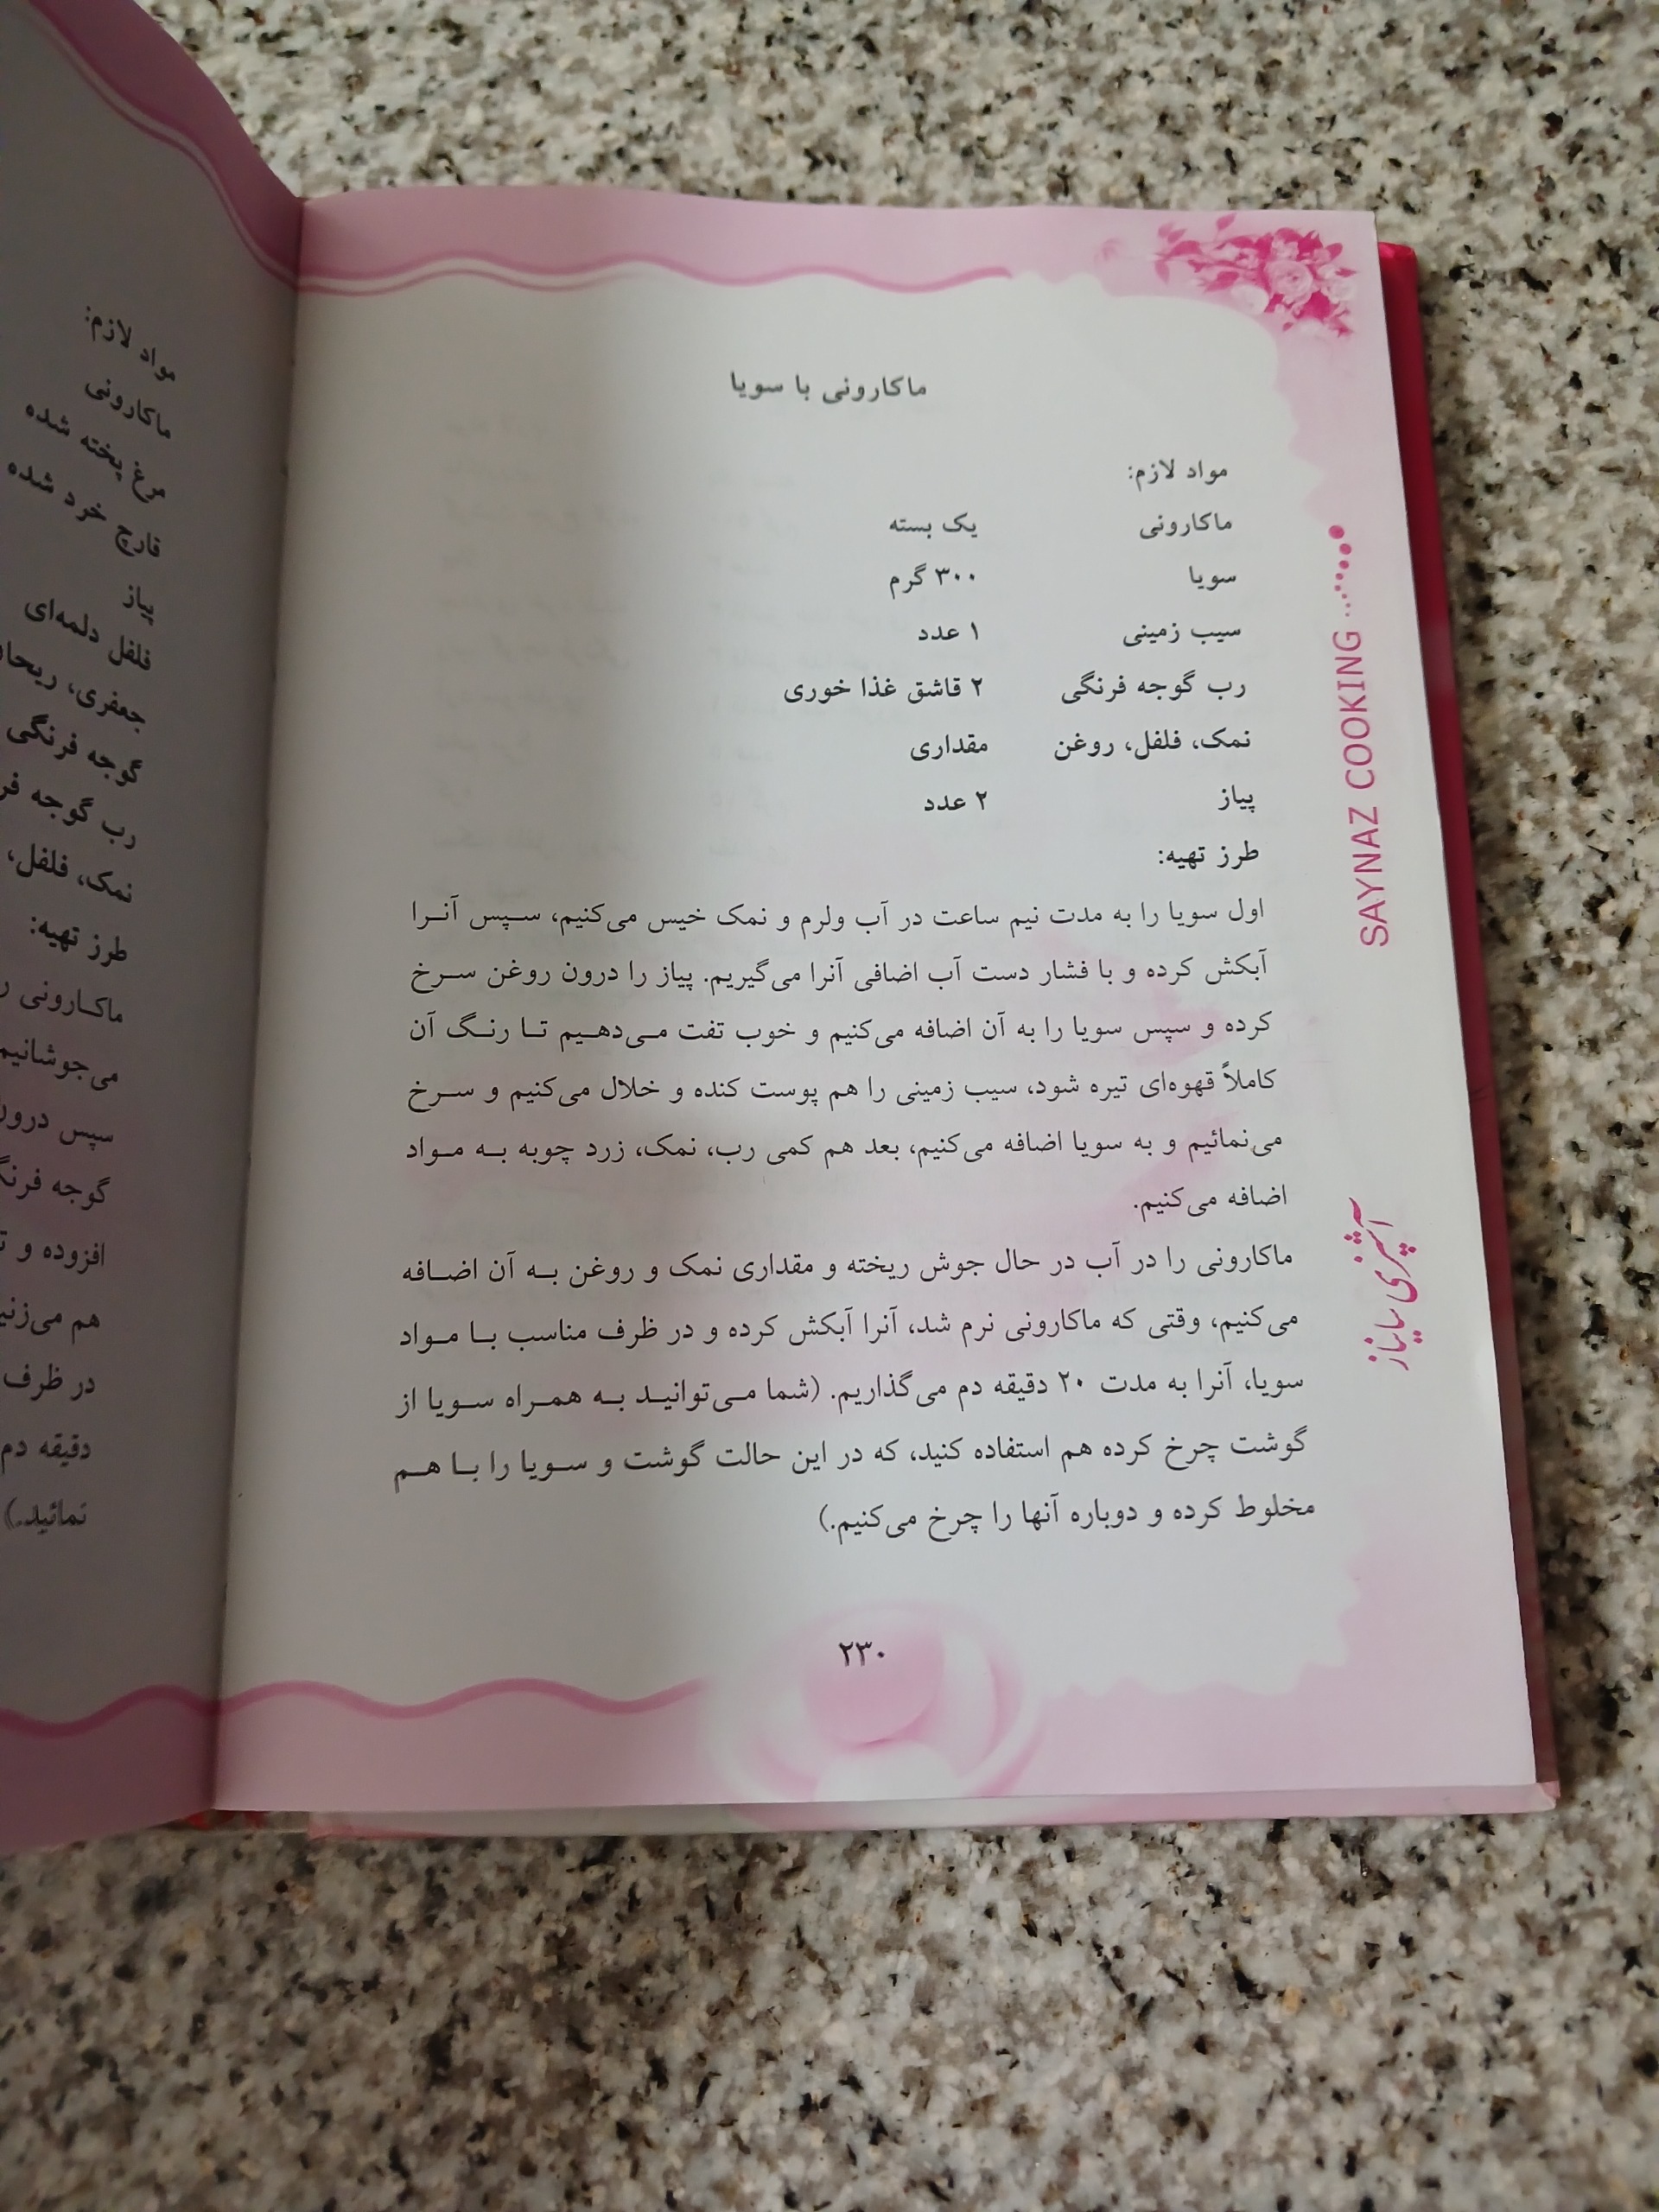 ماکارونی با سویا
مواد لازم:
ماکارونی یک بسته
سویا ۳۰۰ گرم
سیب زمینی ۱ عدد
رب گوجه فرنگی ۲ قاشق غذا خوری
نمک، فلفل، روغن مقداری
پیاز ۲ عدد
طرز تهیه:
اول سویا را به مدت نیم ساعت در آب ولرم و نمک خیس می‌کنیم، سپس آنرا
آبکش کرده و با فشار دست آب اضافی آنرا می‌گیریم. پیاز را درون روغن سرخ
کرده و سپس سویا را به آن اضافه می‌کنیم و خوب تفت می‌دهیم تا رنگ آن
کاملاً قهوه‌ای تیره شود، سیب زمینی را هم پوست کنده و خلال می‌کنیم و سرخ
می‌نمائیم و به سویا اضافه می‌کنیم، بعد هم کمی رب، نمک، زرد چوبه به مواد
اضافه می‌کنیم.
ماکارونی را در آب در حال جوش ریخته و مقداری نمک و روغن به آن اضافه
می‌کنیم، وقتی که ماکارونی نرم شد، آنرا آبکش کرده و در ظرف مناسب با مواد
سویا، آنرا به مدت ۲۰ دقیقه دم می‌گذاریم. (شما می‌توانید به همراه سویا از
گوشت چرخ کرده هم استفاده کنید، که در این حالت گوشت و سویا را با هم
مخلوط کرده و دوباره آنها را چرخ می‌کنیم.)
۲۳۰
SAYNAZ COOKING
آشپزی سایناز
مواد لازم:
ماکارونی
مرغ پخته شده
قارچ خرد شده
پیاز
فلفل دلمه‌ای
جعفری،
گوجه فرنگی
رب گوجه
نمک، فلفل،
طرز تهیه:
ماکارونی
می‌جوشانیم
سپس
گوجه
افزوده و
هم
در ظرف
دقیقه دم
نمائید.)